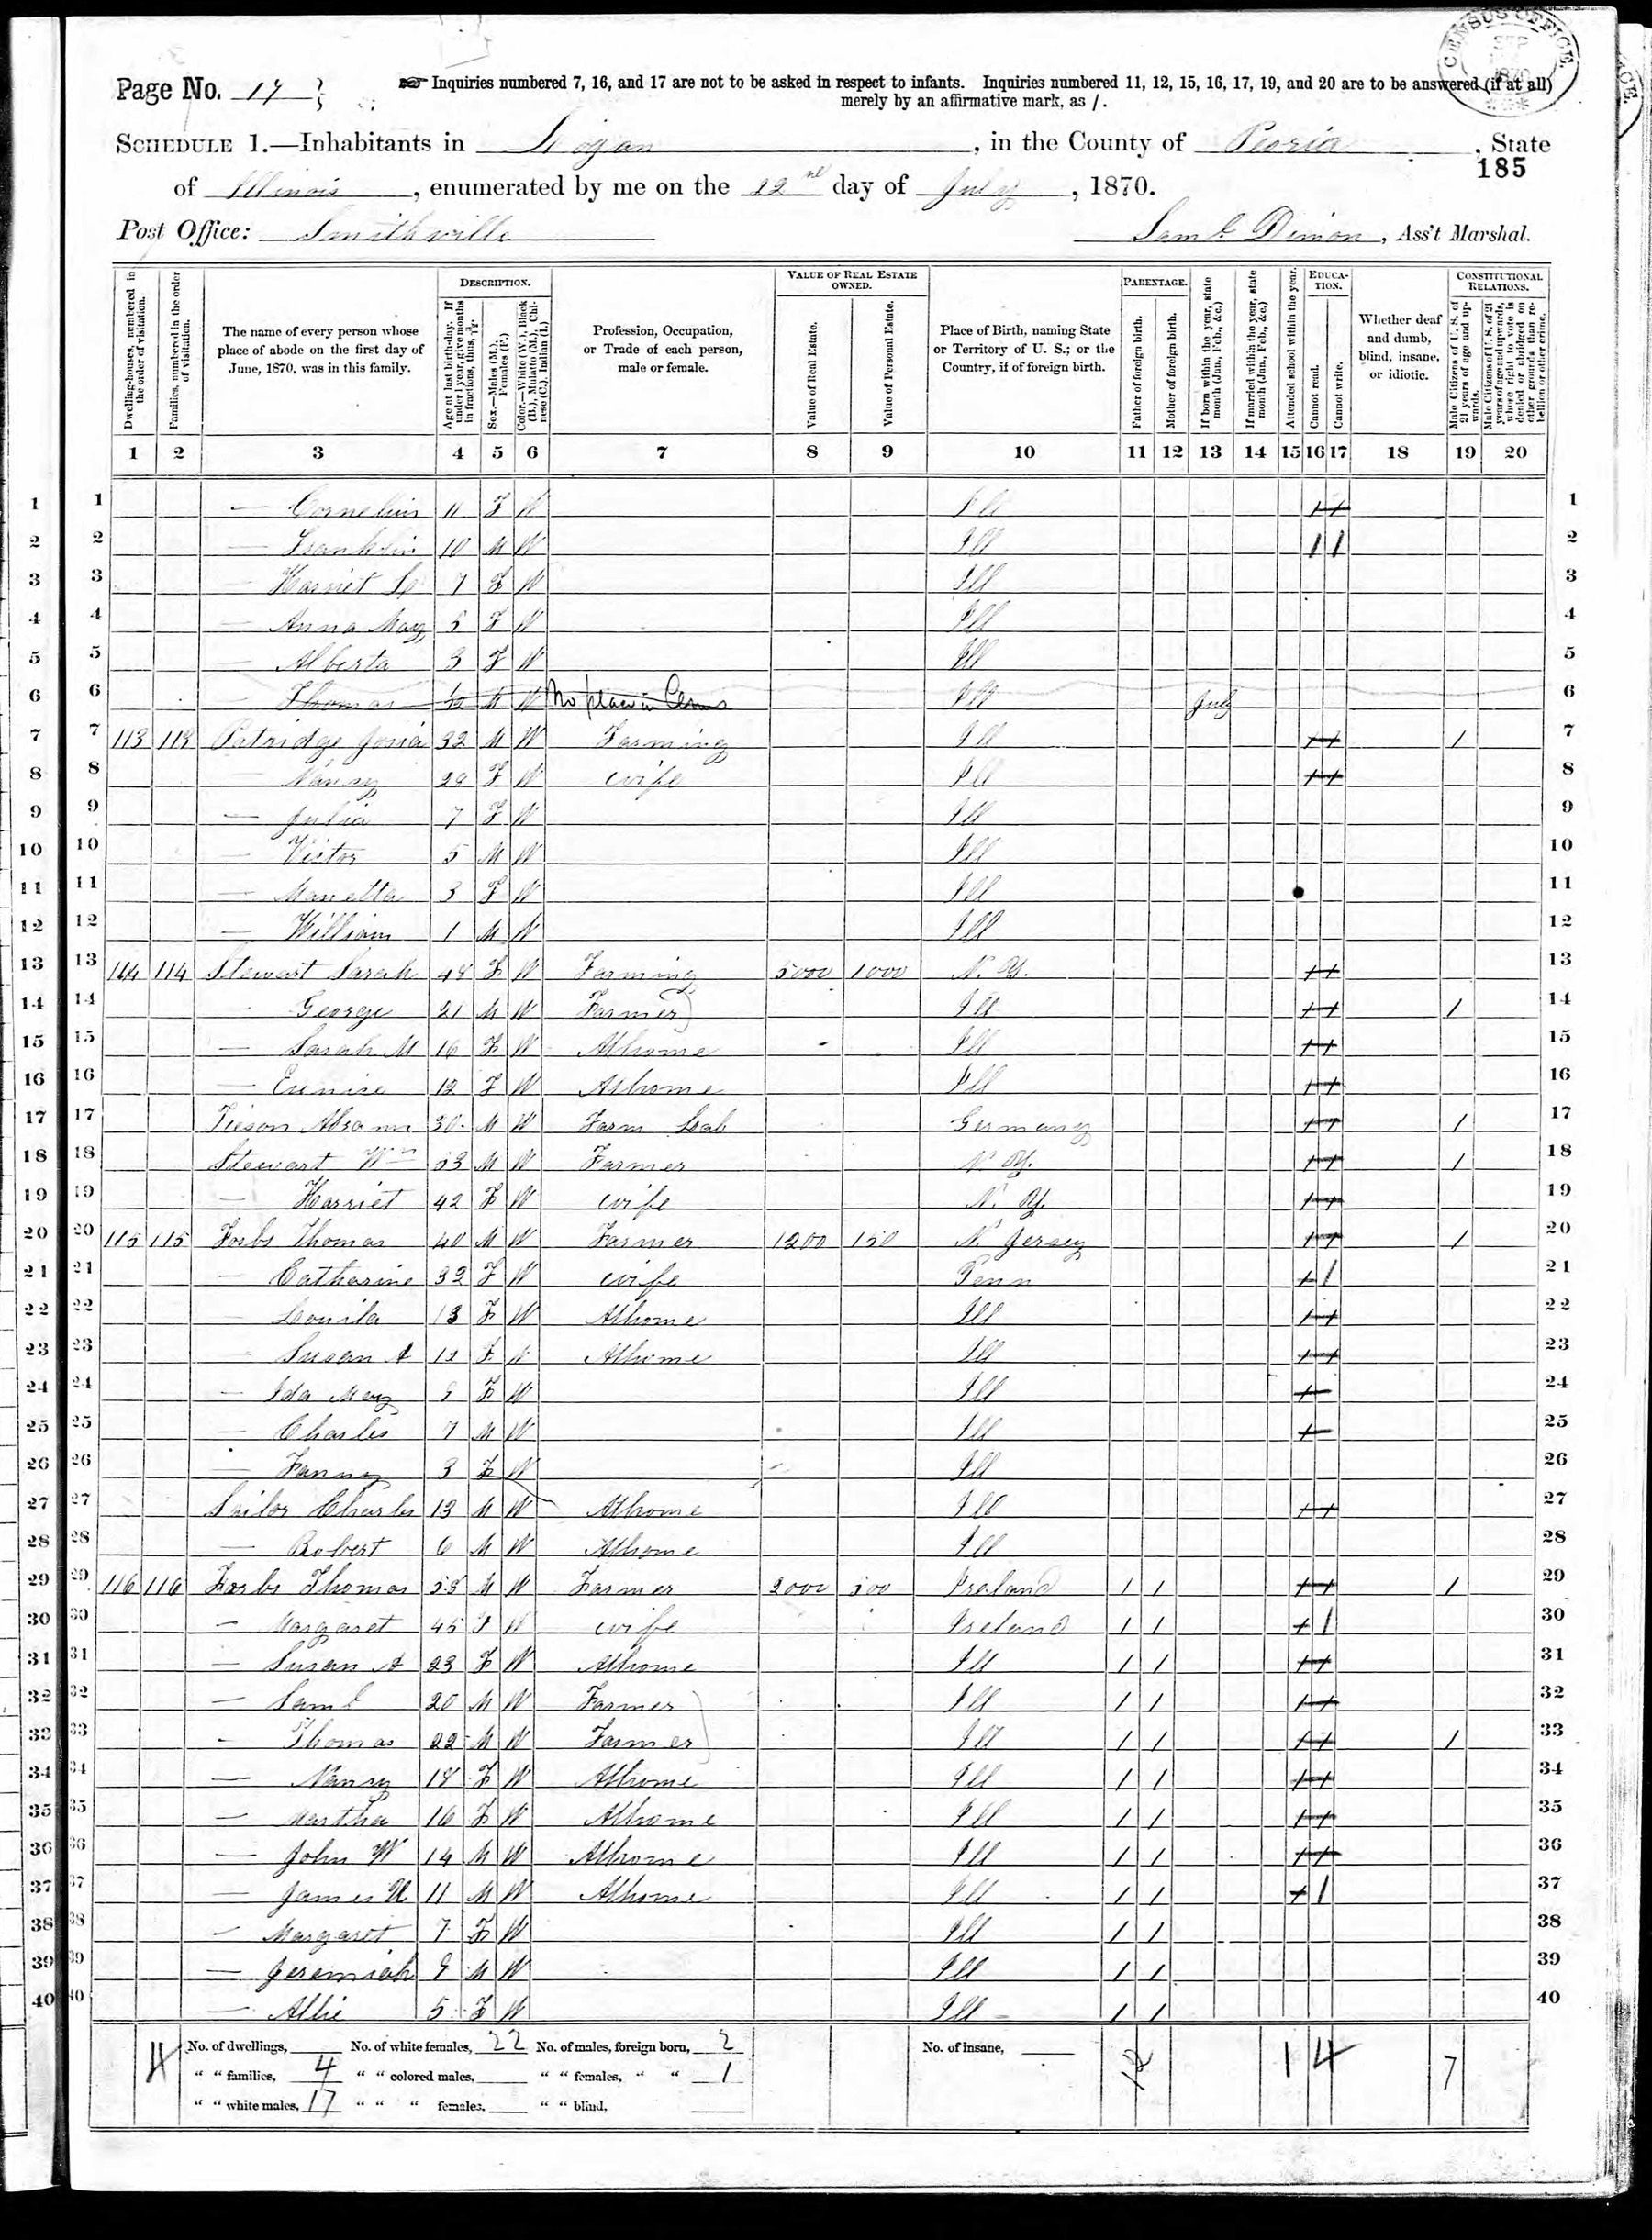 CENSUS OFFICE. SEP 1870
Page No. 17
Inquiries numbered 7, 16, and 17 are not to be asked in respect to infants. Inquiries numbered 11, 12, 15, 16, 17, 19, and 20 are to be answered (if at all)
merely by an affirmative mark, as /.
SCHEDULE 1.—Inhabitants in Logan, in the County of Peoria, State
185
of Illinois, enumerated by me on the 12nd day of July, 1870.
Post Office: Smithville
Saml Dimon, Ass't Marshal.
Dwelling-houses, numbered in the order of visitation.
Families, numbered in the order of visitation.
The name of every person whose place of abode on the first day of June, 1870, was in this family.
DESCRIPTION.
Age at last birth-day. If under 1 year, give months in fractions, thus,
Sex.—Males (M.), Females (F.)
Color.—White (W.), Black (B.), Mulatto (M.), Chinese (C.), Indian (I.)
Profession, Occupation, or Trade of each person, male or female.
VALUE OF REAL ESTATE OWNED.
Value of Real Estate.
Value of Personal Estate.
Place of Birth, naming State or Territory of U. S.; or the Country, if of foreign birth.
PARENTAGE.
Father of foreign birth.
Mother of foreign birth.
If born within the year, state month (Jan., Feb., &c.)
If married within the year, state month (Jan., Feb., &c.)
Attended school within the year.
EDUCATION.
Cannot read.
Cannot write.
Whether deaf and dumb, blind, insane, or idiotic.
CONSTITUTIONAL RELATIONS.
Male Citizens of U. S. of 21 years of age and upwards.
Male Citizens of U. S. of 21 years of age and upwards, where right to vote is denied or abridged on other grounds than rebellion or other crime.
1 2 3 4 5 6 7 8 9 10 11 12 13 14 15 16 17 18 19 20
1 — Cornelius 11 F W Ill 1
2 — Franklin 10 M W Ill / / 2
3 — Harriet 7 F W Ill 3
4 — Anna May 5 F W Ill 4
5 — Alberta 3 F W Ill 5
6 — Thomas 1/12 M W No place in Cens Ill July 6
7 113 113 Patridge Josia 32 M W Farming Ill / 7
8 — Nancy 29 F W wife Ill 8
9 — Julia 7 F W Ill 9
10 — Victor 5 M W Ill 10
11 — Marietta 3 F W Ill 11
12 — William 1 M W Ill 12
13 114 114 Stewart Sarah 48 F W Farming 5000 1000 N. Y. 13
14 George 21 M W Farmer Ill / 14
15 — Sarah M 16 F W Athome Ill 15
16 — Eunice 12 F W Athome Ill 16
17 Abram 30 M W Farm Lab Germany / 17
18 Stewart Wm 53 M W Farmer N. Y. / 18
19 — Harriet 42 F W wife N. Y. 19
20 115 115 Forbs Thomas 40 M W Farmer 1200 150 N. Jersey / 20
21 — Catharine 32 F W wife Penn / 21
22 — Louila 13 F W Athome Ill 22
23 — Susan A 12 F W Athome Ill 23
24 — Ida May F W Ill 24
25 — Charles 7 M W Ill 25
26 — Fanny 3 F W Ill 26
27 Sailor Charles 13 M W Athome Ill 27
28 — Robert 6 M W Athome Ill 28
29 116 116 Forbs Thomas 58 M W Farmer 2000 500 Ireland / / / 29
30 — Margaret 45 F W wife Ireland / / / 30
31 — Susan A 23 F W Athome Ill / / 31
32 — Saml 20 M W Farmer Ill / / 32
33 — Thomas 22 M W Farmer Ill / / / 33
34 — Nancy 18 F W Athome Ill / / 34
35 — Martha 16 F W Athome Ill / / 35
36 — John W 14 M W Athome Ill / / 36
37 — James 11 M W Athome Ill / / / 37
38 — Margaret 7 F W Ill / / 38
39 — Jeremiah 9 M W Ill / / 39
40 — Allie 5 F W Ill / / 40
4 No. of dwellings, No. of white females, 22 No. of males, foreign born, 2 No. of insane, 12 1 4 7
" " families, 4 " " colored males, " " females, " " 1
" " white males, 17 " " " females, " " blind,